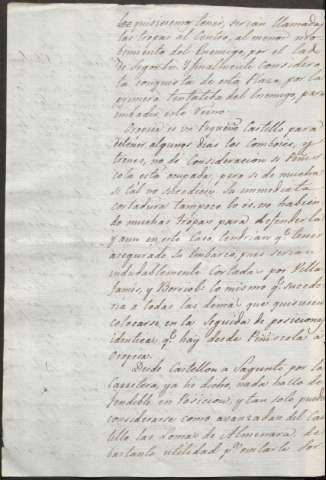 las tropas al Centro, al menor mo-
bimiento del Enemigo, por el lado
de Segorbe. Y finalmente considero
la conquista de esta Plaza, por la
primera tentatiba del Enemigo, para
imbadir este Reino.
Oropesa es un Pequeño Castillo para
detener algunos dias los comboies, y
tiene, no de consideracion si Peñis-
cola está ocupada, pero si de mucha
si tal no sucediese. Su immediata
cortadura tampoco lo es, no habien
do muchas tropas para defenderla
y aun en este caso tendrian qe. tener
asegurado su embarco, pues serian
indudablemente cortadas por Villa
famis, y Borriol: lo mismo qe. sucede
ria a todas las demas que quisiesen
colocarse, en la seguida de posiciones
identicas qe. hay desde Peñiscola a
Oropesa.
Desde Castellon a Sagunto por la
Carretera, ya he dicho, nada hallo de-
fendible en Posicion, y tan solo puede
considerarse como avanzadas del Cas-
tillo, las Lomas de Almenara, de
bastante utilidad pa.